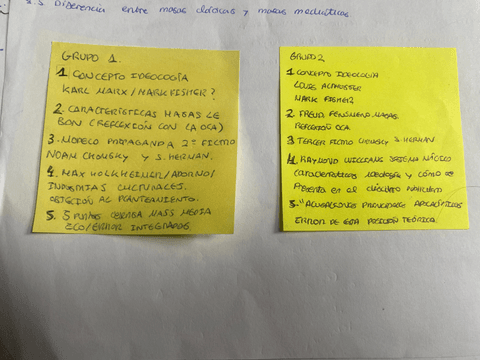 3.3 Diferencia entre masas clásicas y masas mediáticas
GRUPO 1.
1. CONCEPTO IDEOLOGÍA
KARL MARX / MARK FISHER?
2. CARACTERÍSTICAS MASAS LE
BON (REFLEXIÓN CON LA OCA)
3. MODELO PROPAGANDA 2º FILTRO
NOAM CHOMSKY Y S. HERMAN.
4. MAX HORKHEIMER/ADORNO/
INDUSTRIAS CULTURALES.
OBJECIÓN AL PLANTEAMIENTO.
5. 5 PUNTOS CRÍTICA MASS MEDIA
ECO/ERROR INTEGRADOS
GRUPO 2
1 CONCEPTO IDEOLOGÍA
LOUIS ALTHUSSER
MARK FISHER
2. FREUD FENÓMENO MASAS
REFLEXIÓN OCA
3 TERCER FILTRO CHOMSKY S. HERMAN.
4. RAYMOND WILLIAMS SISTEMA MÁGICO
CARACTERÍSTICAS IDEOLOGÍA Y CÓMO SE
PRESENTA EN EL DISCURSO PUBLICITARIO
5. "ACUSACIONES PRINCIPALES APOCALÍPTICOS
ERROR DE ESA POSICIÓN TEÓRICA.